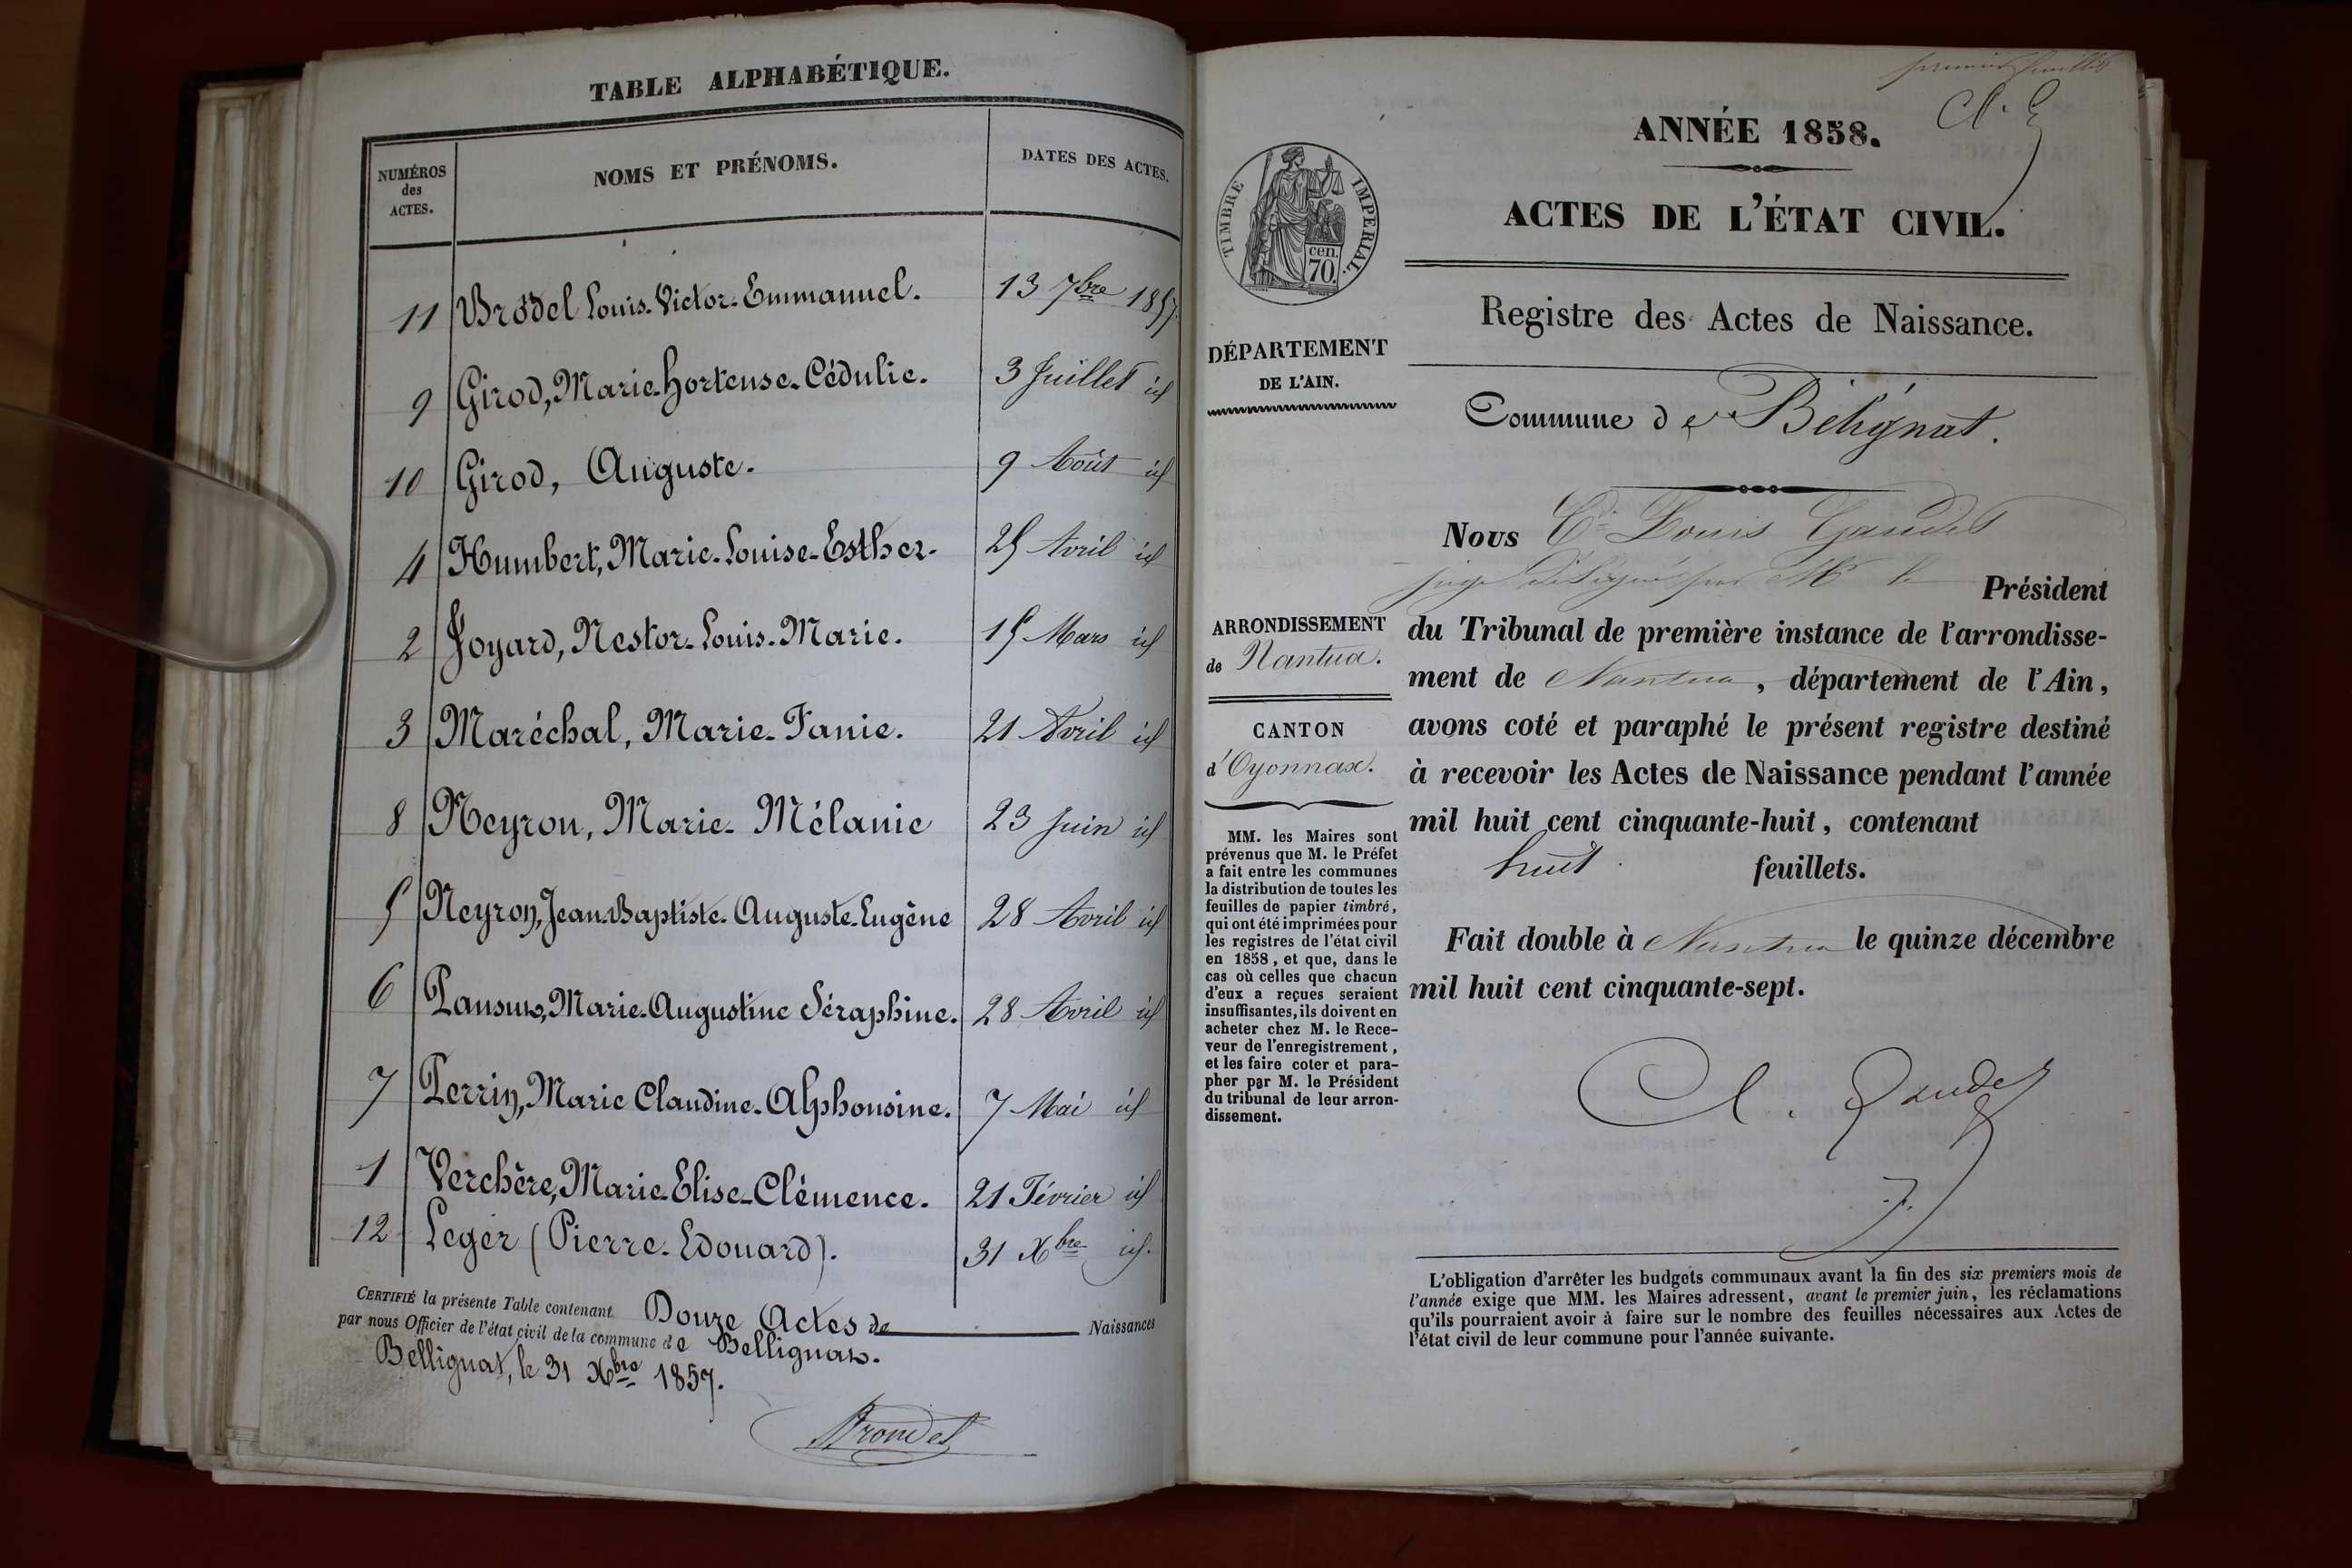 TABLE ALPHABÉTIQUE.
NUMÉROS des ACTES. NOMS ET PRÉNOMS. DATES DES ACTES.
11 Brodel Louis-Victor-Emmanuel. 13 7bre 1857.
9 Girod, Marie-hortense-Cédulie. 3 Juillet id
10 Girod, Auguste. 9 Août id
4 Humbert, Marie-Louise-Esther. 25 Avril id
2 Joyard, Nestor-Louis-Marie. 15 Mars id
3 Maréchal, Marie-Fanie. 21 Avril id
8 Neyron, Marie-Mélanie 23 Juin id
5 Neyron, Jean-Baptiste-Auguste-Eugène 28 Avril id
6 Marie-Augustine Séraphine. 28 Avril id
7 Perrin, Marie Claudine-Alphonsine. 7 Mai id
1 Verchère, Marie-Elise-Clémence. 21 Février id
12 Leger (Pierre-Edouard). 31 Xbre id.
CERTIFIÉ la présente Table contenant Douze Actes de Naissances
par nous Officier de l'état civil de la commune de Bellignat.
Bellignat, le 31 Xbre 1857.
premier feuillet
ANNÉE 1858.
ACTES DE L'ÉTAT CIVIL.
TIMBRE IMPERIAL.
cen.
70.
Registre des Actes de Naissance.
DÉPARTEMENT
DE L'AIN.
Commune de Bélignat.
Nous Cde Louis Gaudet
juge délégué par Mr le Président
du Tribunal de première instance de l'arrondisse-
ment de Nantua, département de l'Ain,
avons coté et paraphé le présent registre destiné
à recevoir les Actes de Naissance pendant l'année
mil huit cent cinquante-huit, contenant
huit feuillets.
Fait double à Nantua le quinze décembre
mil huit cent cinquante-sept.
Cl. Gaudet
ARRONDISSEMENT
de Nantua.
CANTON
d'Oyonnax.
MM. les Maires sont
prévenus que M. le Préfet
a fait entre les communes
la distribution de toutes les
feuilles de papier timbré,
qui ont été imprimées pour
les registres de l'état civil
en 1858, et que, dans le
cas où celles que chacun
d'eux a reçues seraient
insuffisantes, ils doivent en
acheter chez M. le Rece-
veur de l'enregistrement,
et les faire coter et para-
pher par M. le Président
du tribunal de leur arron-
dissement.
L'obligation d'arrêter les budgets communaux avant la fin des six premiers mois de
l'année exige que MM. les Maires adressent, avant le premier juin, les réclamations
qu'ils pourraient avoir à faire sur le nombre des feuilles nécessaires aux Actes de
l'état civil de leur commune pour l'année suivante.